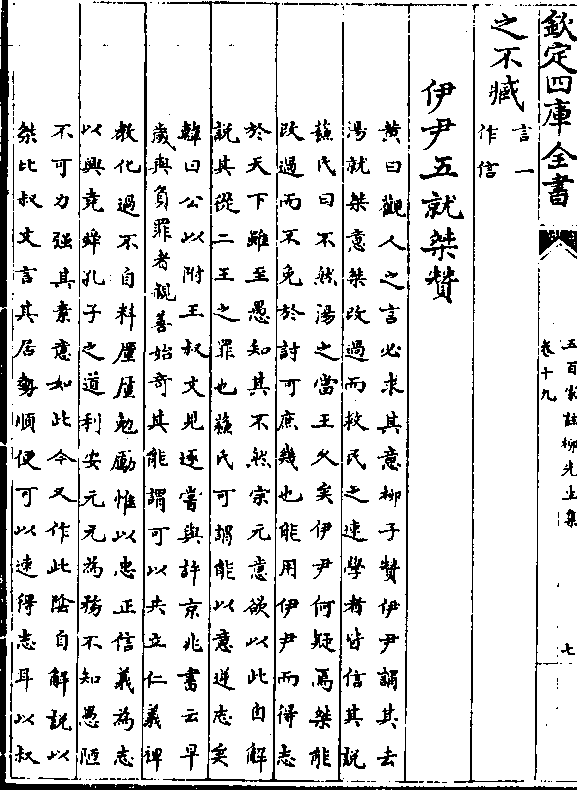 欽定四庫全書
五百家註柳先生集
卷十九
七
之不臧言一作信
伊尹五就桀贊
黄曰觀人之言必求其意柳子贊伊尹謂其去
湯就桀意桀改過而救民之速學者皆信其說
蘇氏曰不然湯之當王久矣伊尹何疑焉桀能
改過而不免於討可庶幾也能用伊尹而得志
於天下雖至愚知其不然宗元意欲以此自解
說其從二王之罪也蘇氏可謂能以意逆志矣
韓曰公以附王叔文見逐嘗與許京兆書云早
歲與負罪者親善始奇其能謂可以共立仁義裨
教化過不自料懃懃勉勵惟以忠正信義為志
以興堯舜孔子之道利安元元為務不知愚陋
不可力强其素意如此今又作此陰自解說以
桀比叔文言其居勢順便可以速得志耳以叔